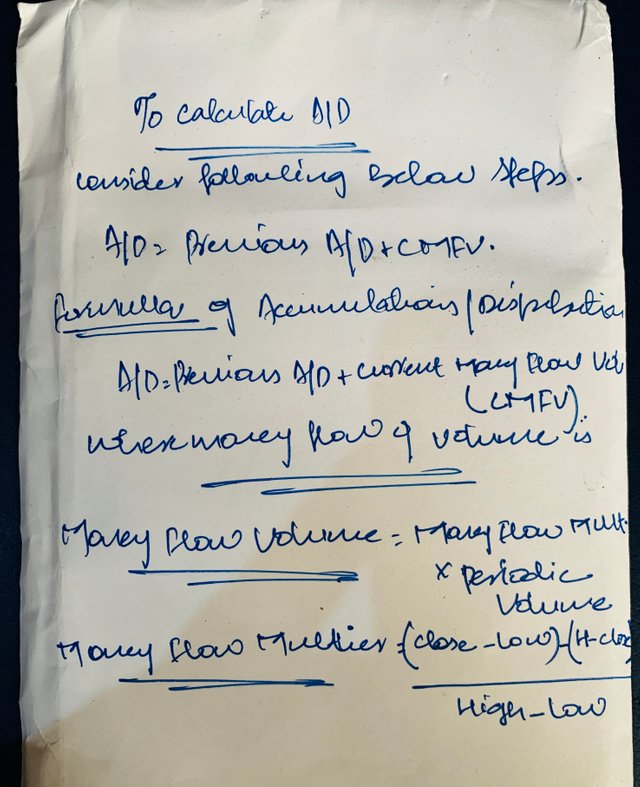 To calculate A/D
consider following below steps.
A/D = Previous A/D + CMFV.
Formula of Accumulations/Distribution
A/D = Previous A/D + Current Money Flow Vol
(CMFV)
where money flow of volume is
Money Flow Volume = Money Flow Mult.
x Periodic
Volume
Money Flow Multier = (Close - Low) - (H - Close)
High - Low